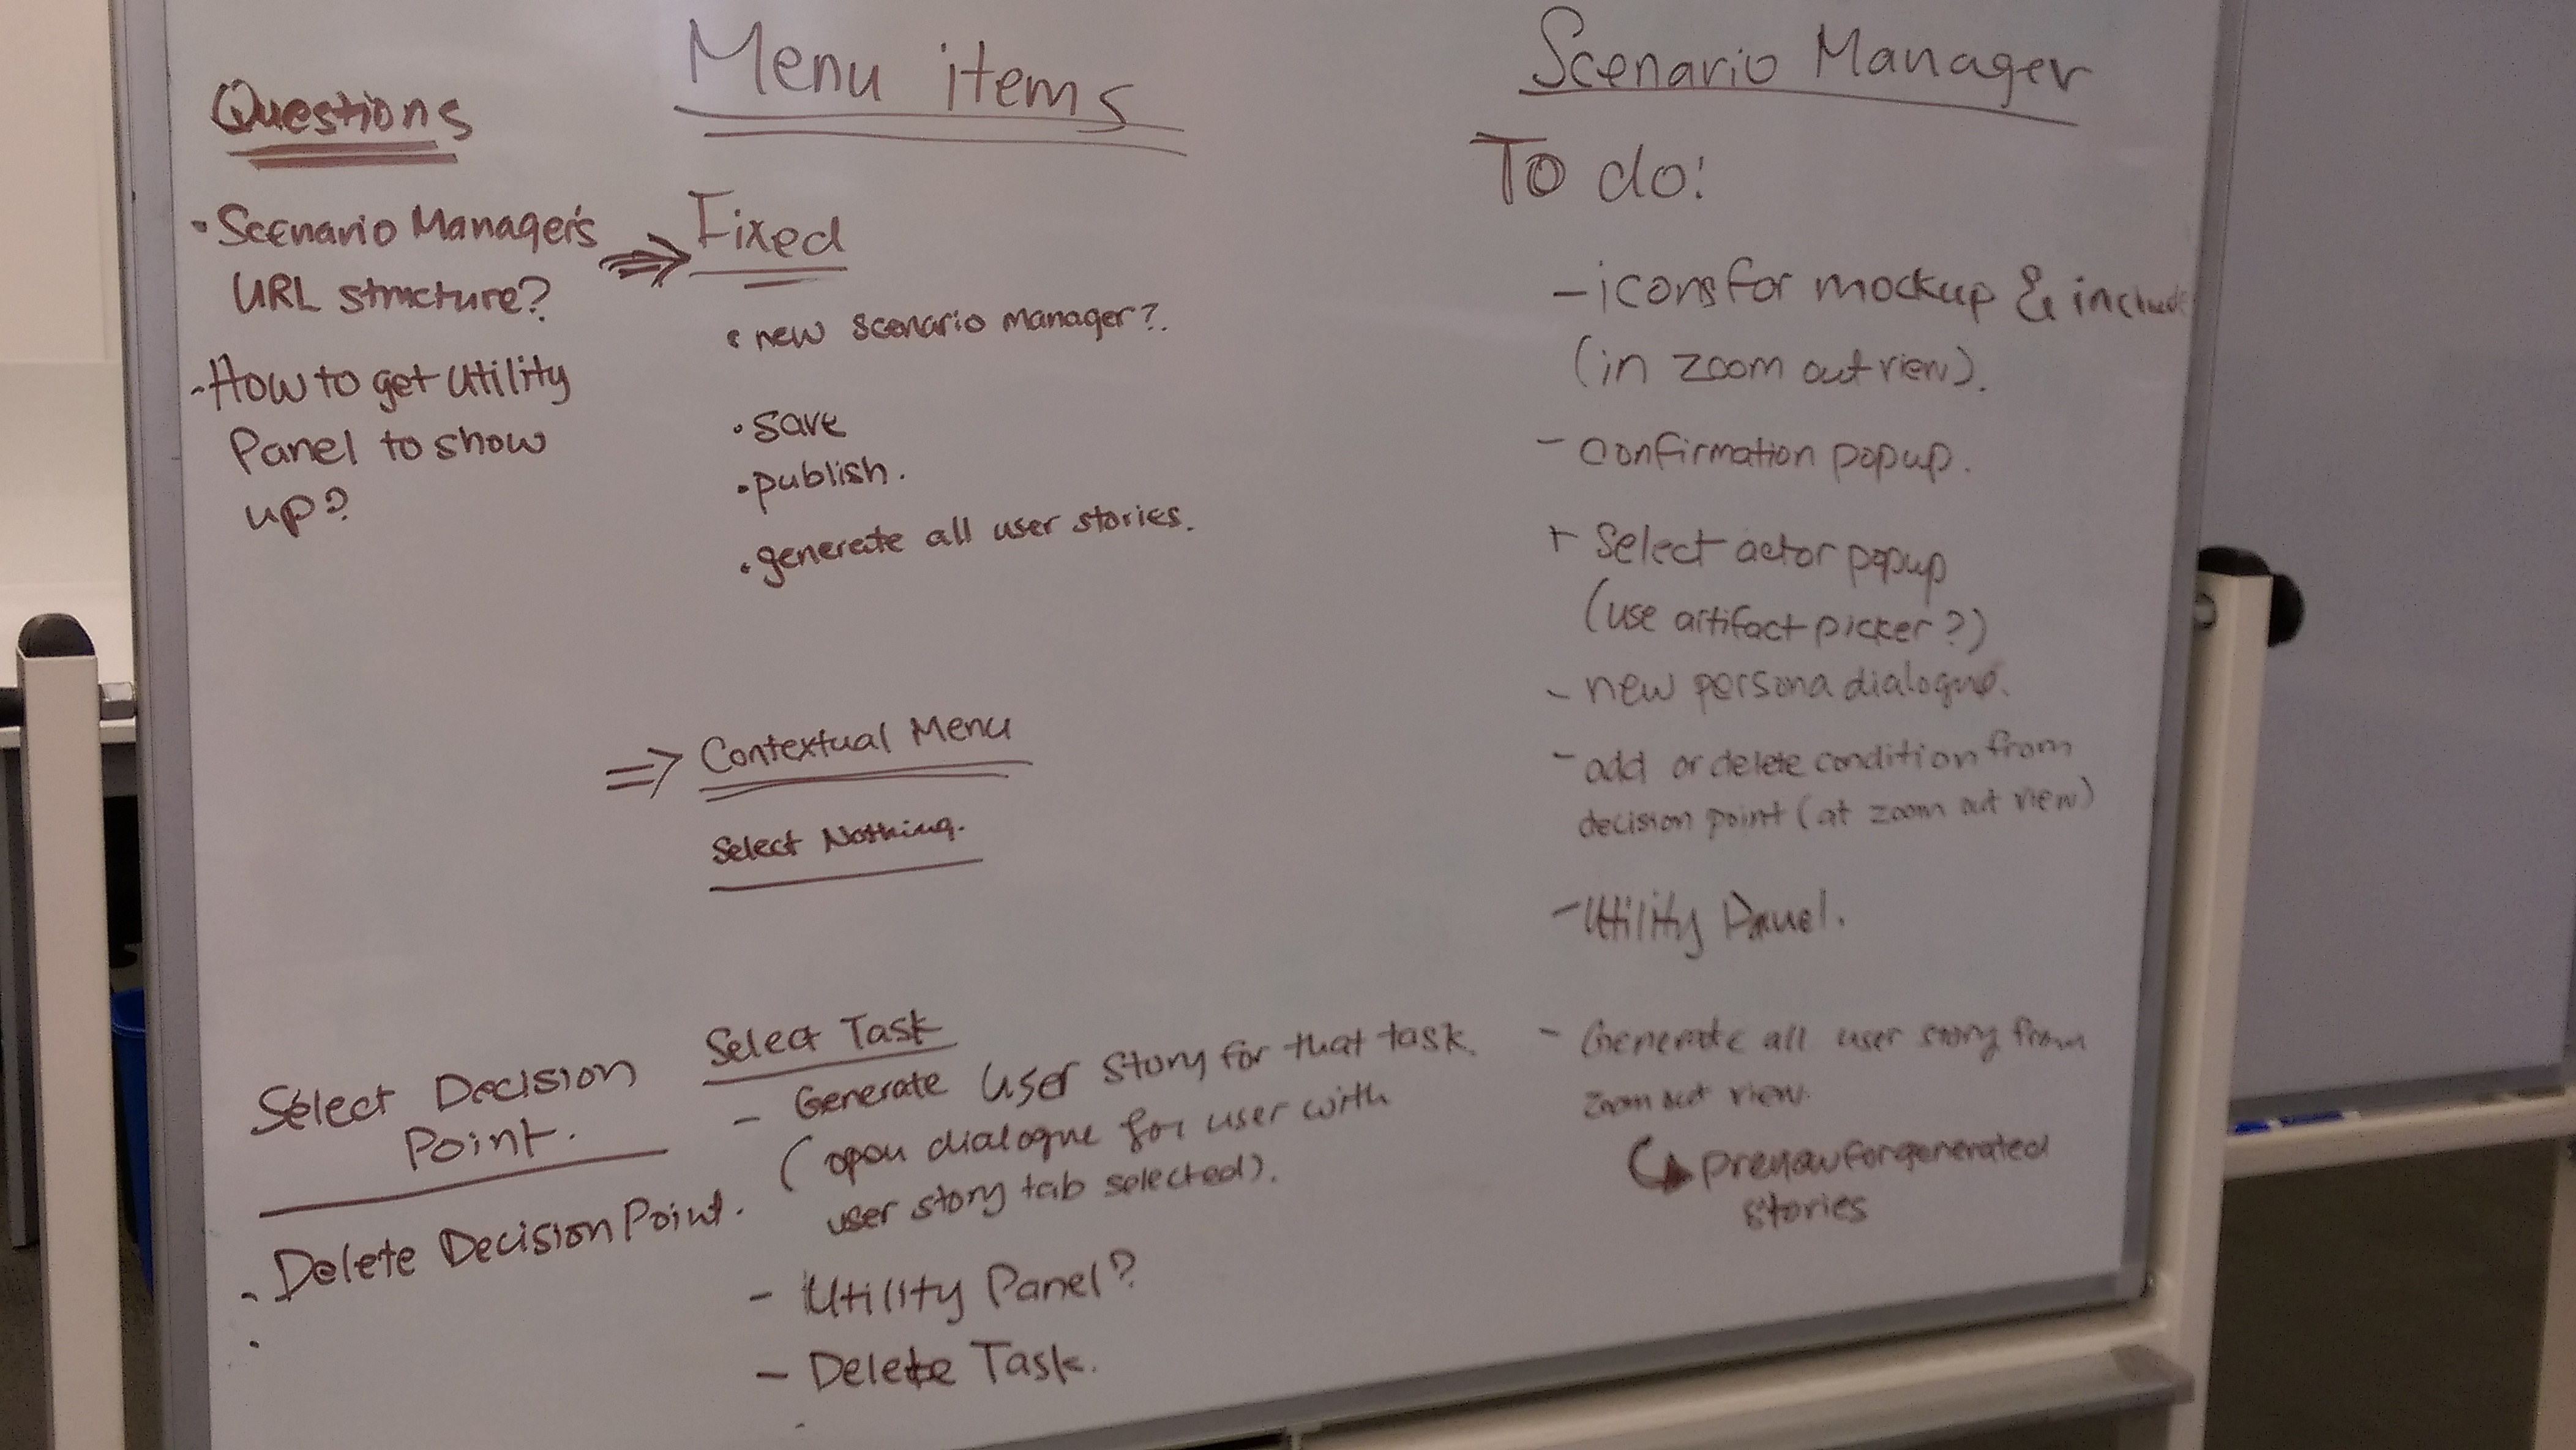 Questions
• Scenario Manager's
URL structure?
- How to get utility
Panel to show
up?
Menu items
⇒ Fixed
• new scenario manager?.
• save
• publish.
• generate all user stories.
⇒ Contextual Menu
Select Nothing.
Select Decision
Point.
- Delete Decision Point.
Select Task
- Generate User Story for that task.
(open dialogue for user with
user story tab selected).
- Utility Panel?
- Delete Task.
Scenario Manager
To do:
- icons for mockup & include
(in zoom out view).
- confirmation popup.
+ Select actor popup
(use artifact picker?)
- new persona dialogue.
- add or delete condition from
decision point (at zoom out view)
- Utility Panel.
- Generate all user story from
zoom out view.
for generated
stories